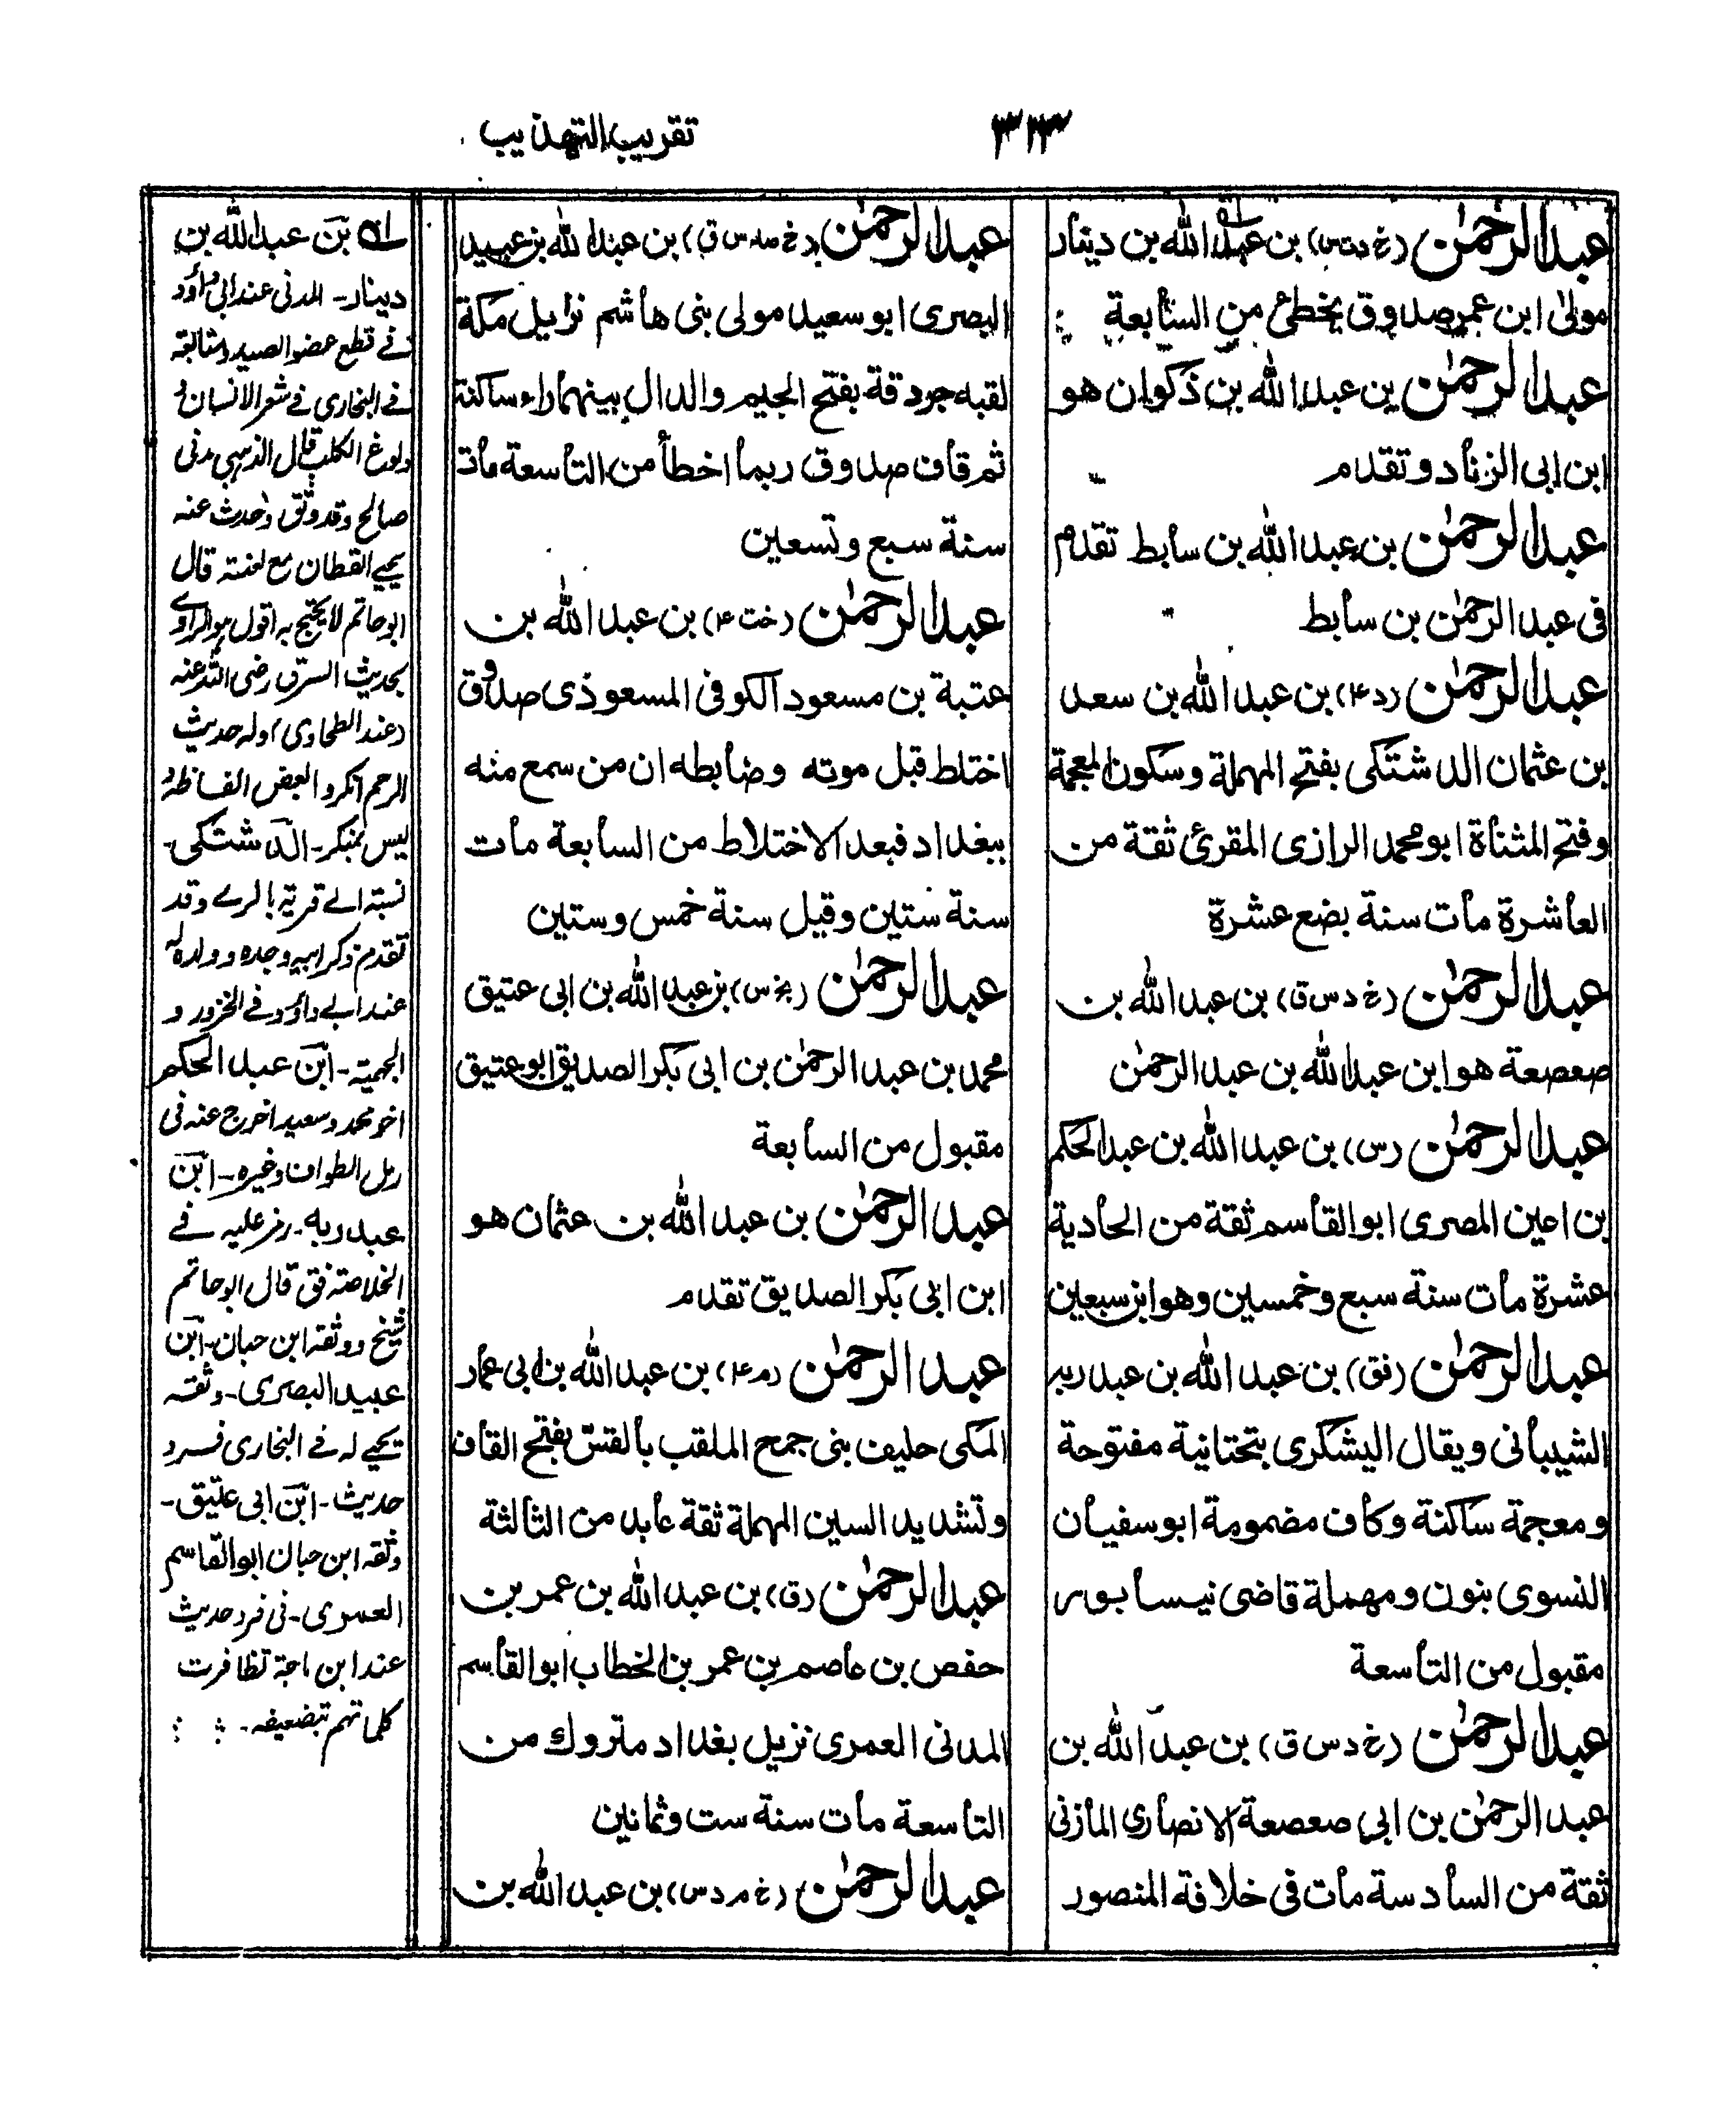 ٣١٣
تقريب التهذيب
عبد الرحمٰن (خ د ت س) بن عبد الله بن دينار
مولىٰ ابن عمر صدوق يخطئ من السابعة
عبد الرحمٰن بن عبد الله بن ذكوان هو
ابن ابى الزناد وتقدم
عبد الرحمٰن بن عبد الله بن سابط تقدم
فى عبد الرحمٰن بن سابط
عبد الرحمٰن (د ٤) بن عبد الله بن سعد
بن عثمان الدشتكى بفتح المهملة وسكون المعجمة
وفتح المثناة ابو محمد الرازى المقرئ ثقة من
العاشرة مات سنة بضع عشرة
عبد الرحمٰن (خ د س ق) بن عبد الله بن
صعصعة هو ابن عبد الله بن عبد الرحمٰن
عبد الرحمٰن (س) بن عبد الله بن عبد الحكم
بن اعين المصرى ابو القاسم ثقة من الحادية
عشرة مات سنة سبع وخمسين وهو ابن سبعين
عبد الرحمٰن (فق) بن عبد الله بن عبد ربه
الشيبانى ويقال اليشكرى بتحتانية مفتوحة
ومعجمة ساكنة وكاف مضمومة ابو سفيان
النسوى بنون ومهملة قاضى نيسابور
مقبول من التاسعة
عبد الرحمٰن (خ د س ق) بن عبد الله بن
عبد الرحمٰن بن ابى صعصعة الانصارى المازنى
ثقة من السادسة مات فى خلافة المنصور
عبد الرحمٰن (خ صد س ق) بن عبد الله بن عبيد
البصرى ابو سعيد مولى بنى هاشم نزيل مكة
لقبه جردقة بفتح الجيم والدال بينهما راء ساكنة
ثم قاف صدوق ربما اخطأ من التاسعة مات
سنة سبع وتسعين
عبد الرحمٰن (خت ٤) بن عبد الله بن
عتبة بن مسعود الكوفى المسعودى صدوق
اختلط قبل موته وضابطه ان من سمع منه
ببغداد فبعد الاختلاط من السابعة مات
سنة ستين وقيل سنة خمس وستين
عبد الرحمٰن (بخ س) بن عبد الله بن ابى عتيق
محمد بن عبد الرحمٰن بن ابى بكر الصديق ابو عتيق
مقبول من السابعة
عبد الرحمٰن بن عبد الله بن عثمان هو
ابن ابى بكر الصديق تقدم
عبد الرحمٰن (م ٤) بن عبد الله بن ابى عمار
المكى حليف بنى جمح الملقب بالقسّ بفتح القاف
وتشديد السين المهملة ثقة عابد من الثالثة
عبد الرحمٰن (ق) بن عبد الله بن عمر بن
حفص بن عاصم بن عمر بن الخطاب ابو القاسم
المدنى العمرى نزيل بغداد متروك من
التاسعة مات سنة ست وثمانين
عبد الرحمٰن (خ م د س) بن عبد الله بن
له بن عبد الله بن
دينار - المدنى عند ابى داؤد
فے قطع عضو الصيد ومتابعة
فے البخارى فے شعر الانسان و
ولوغ الكلب قال الذهبى مدنى
صالح وقد وثق وحدث عنه
يحيے القطان مع تعنته قال
ابو حاتم لا يحتج به اقول هو الراوے
بحديث السرق رضى الله عنه
(عند الطحاوى) وله حديث
الرحم انكروا لبعض الفاظه و
ليس بمنكر - الدشتكى -
نسبة الے قرية بالرے وقد
تقدم ذكر ابيه وجده وولده له
عند ابے داؤد فے الخزور و
الجهمية - ابن عبد الحكم
اخو محمد وسعيد اخرج عنه فى
رمل الطواف وغيره - ابن
عبد ربه - رمز عليه فے
الخلاصة فق قال ابو حاتم
شيخ ووثقه ابن حبان - ابن
عبيد البصرى - وثقه
يحيے له فے البخارى فرد
حديث - ابن ابى عتيق -
وثقه ابن حبان ابو القاسم
العمرى - فى فرد حديث
عند ابن ماجة تظافرت
كلماتهم بتضعيفه -